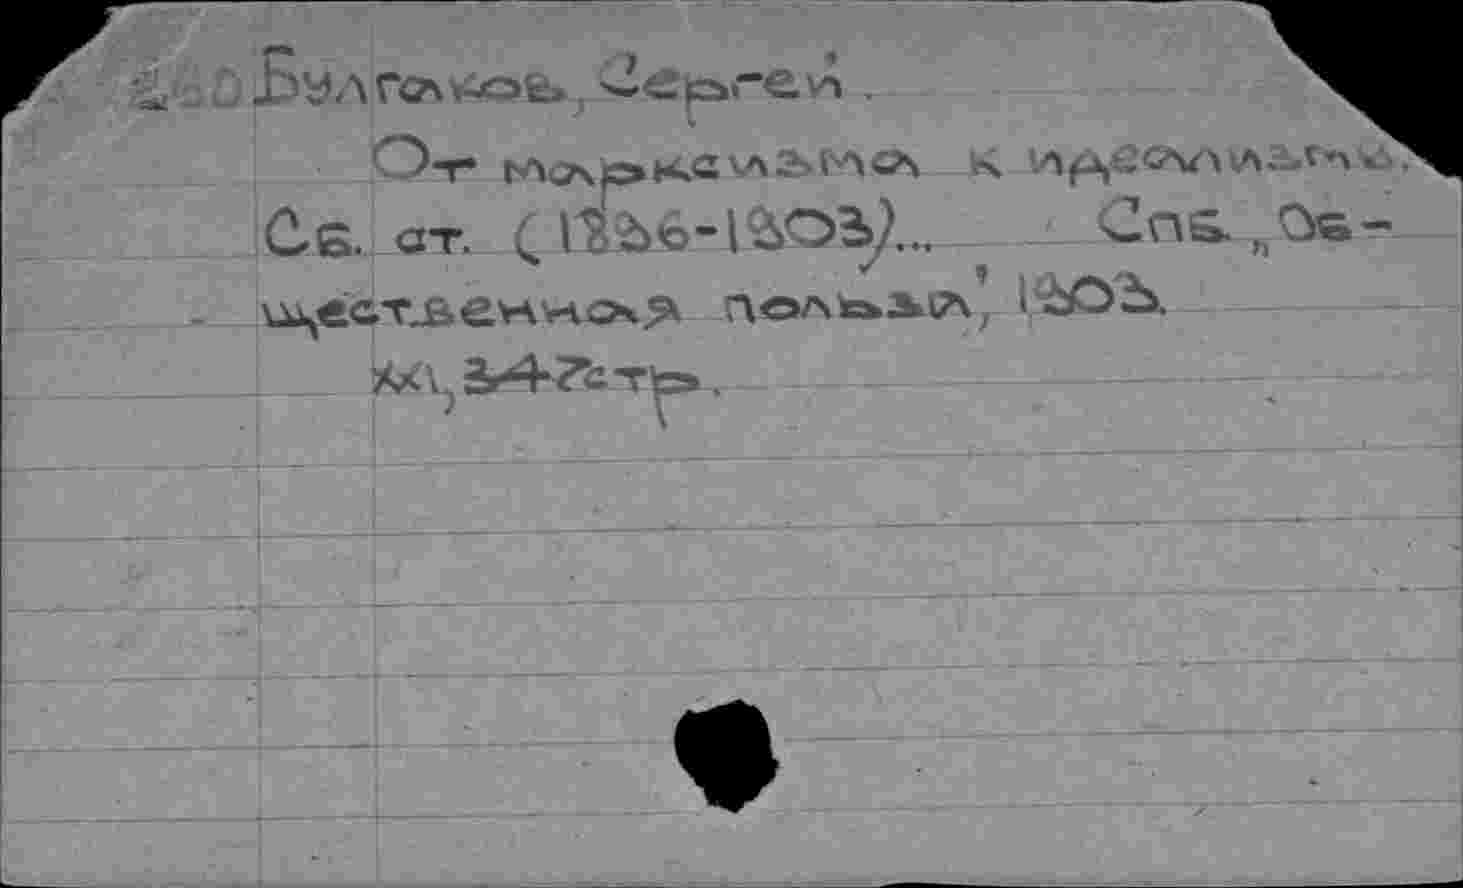 Булгаков, Сергей.
От марксизма к идеализму.
Сб. ст. (1896-1903)... Спб. „Об-
щественная польза', 1903.
XXI, 347 стр.